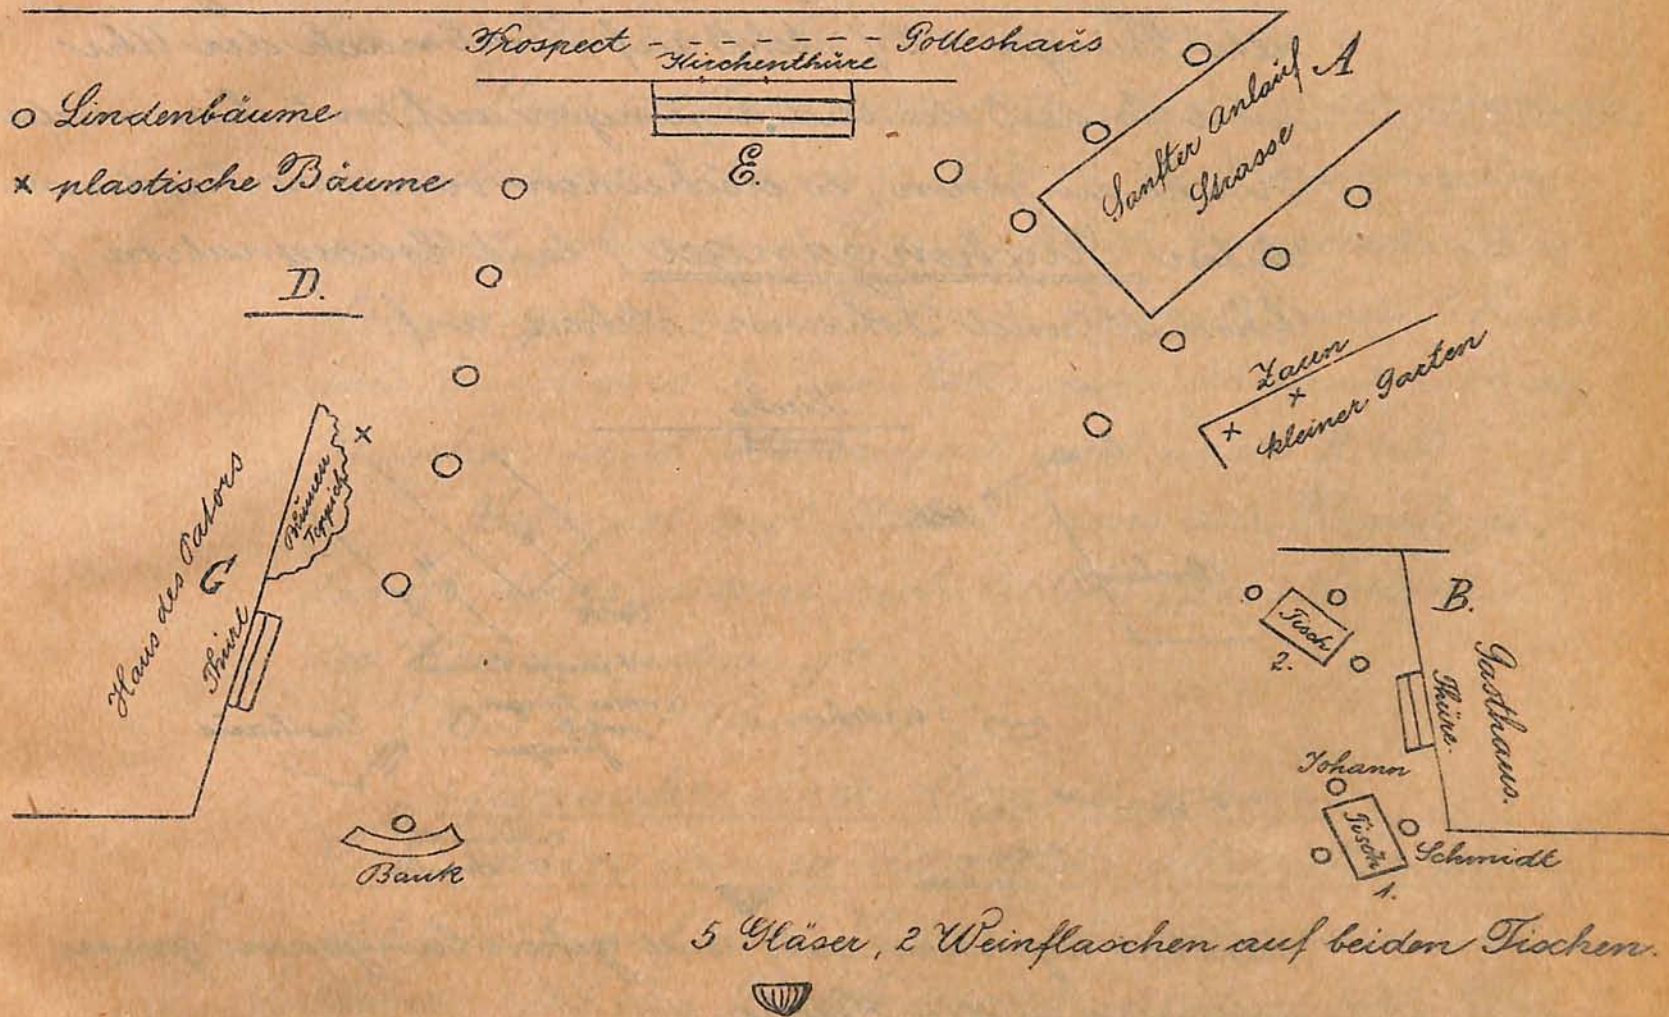 Prospect - - - - - - - Gotteshaus
Kirchenthüre
o Lindenbäume
x plastische Bäume
E.
Sanfter Anlauf A
Strasse
D.
Zaun
kleiner Garten
Haus des Pastors
C
Thüre
Blumen
Teppich
B.
Gasthaus.
Thüre.
Tisch
2.
Johann
Tisch
1.
Schmidt
Bank
5 Gläser, 2 Weinflaschen auf beiden Tischen.